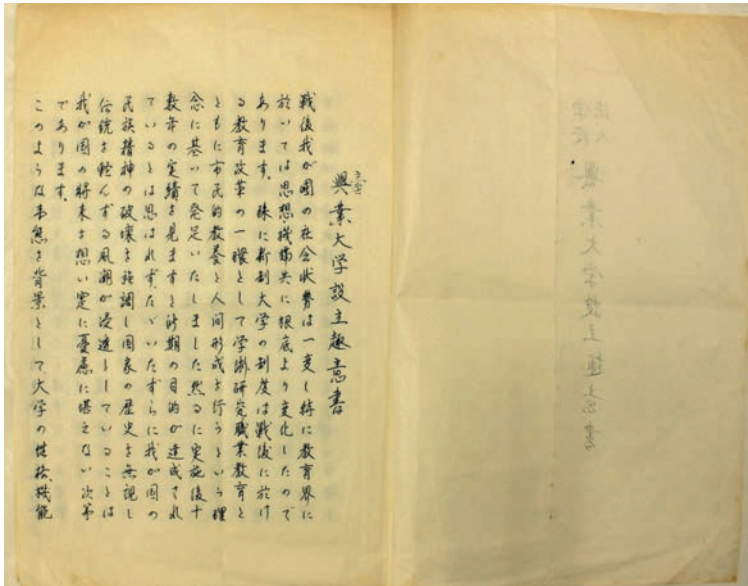 興業大学設立趣意書
戦後我が國の社会状勢は一変し特に教育界に
於いては思想・機構共に根底より変化したので
あります。殊に新制大学の制度は戦後に於け
る教育改革の一環として学術研究職業教育と
ともに市民的教養と人間形成を行うという理
念に基いて発足いたしました然るに実施後十
数年の実績を見ますと所期の目的が達成され
ているとは思はれず、たゞいたずらに我が国の
民族精神の破壊を強調し国家の歴史を無視し
伝統を軽んずる風潮が浸透していることは
我が国の将来を想い寔に憂慮に堪えない次第
であります。
このような事態を背景として、大学の性格、機能